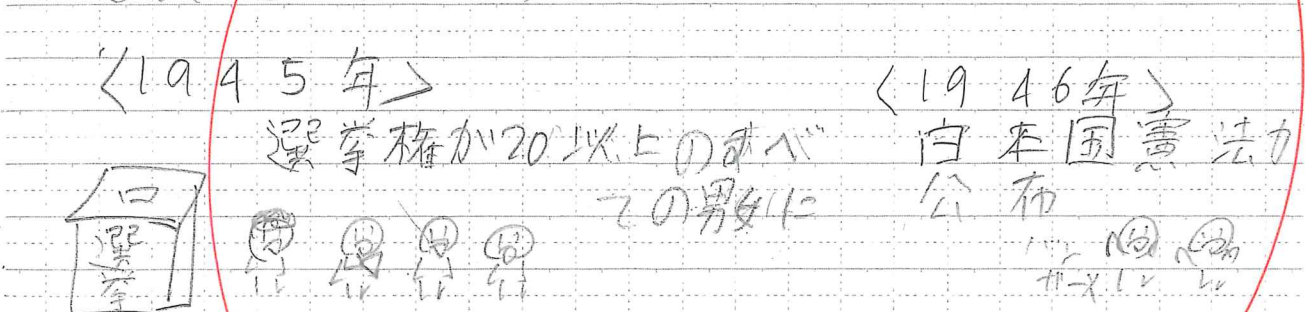 〈1945年〉
選挙権が20以上のすべ
ての男女に
〈1946年〉
日本国憲法が
公布
選挙
バン
ザーイ